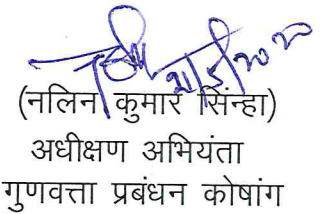 (नलिन कुमार सिंन्हा)
अधीक्षण अभियंता
गुणवत्ता प्रबंधन कोषांग